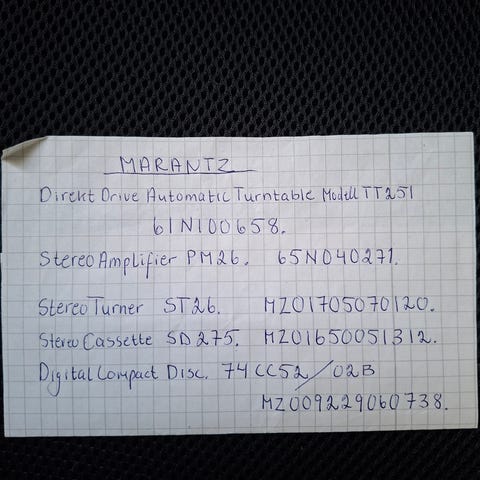 MARANTZ
Direkt Drive Automatic Turntable Modell TT251
61N100658.
Stereo Amplifier PM26. 65N040271.
Stereo Turner ST26. MZ01705070120.
Stereo Cassette SD275. MZ01650051312.
Digital Compact Disc. 74CC52/02B
MZ009229060738.